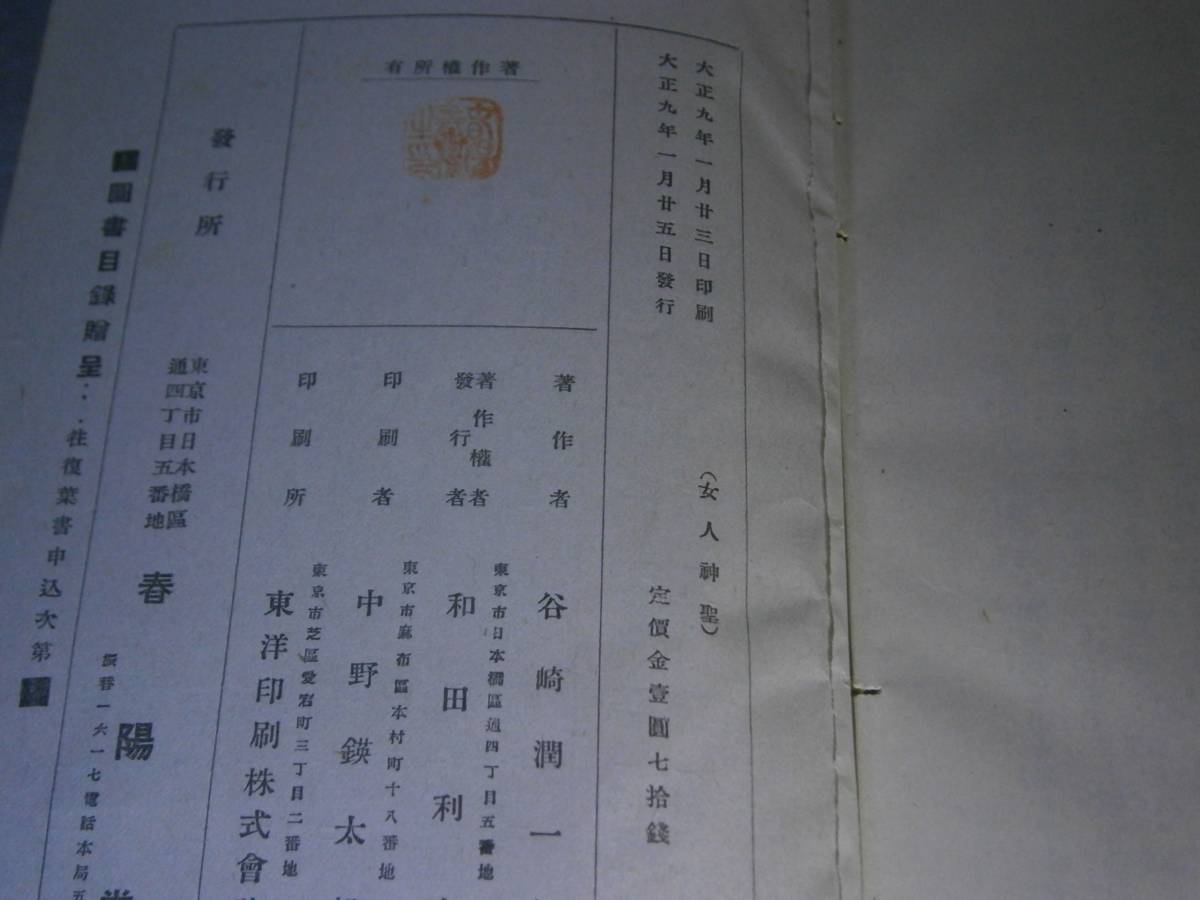 大正九年一月廿三日印刷
大正九年一月廿五日發行
(女人神聖)
定價金壹圓七拾錢
有所權作著
著作者
谷崎潤一
著作權者
發行者
東京市日本橋區通四丁目五番地
和田利
印刷者
東京市麻布區本村町十八番地
中野鍈太
印刷所
東京市芝區愛宕町三丁目二番地
東洋印刷株式會
發行所
東京市日本橋區
通四丁目五番地
春陽堂
振替一六一七電話本局五
圖書目錄贈呈‥往復葉書申込次第